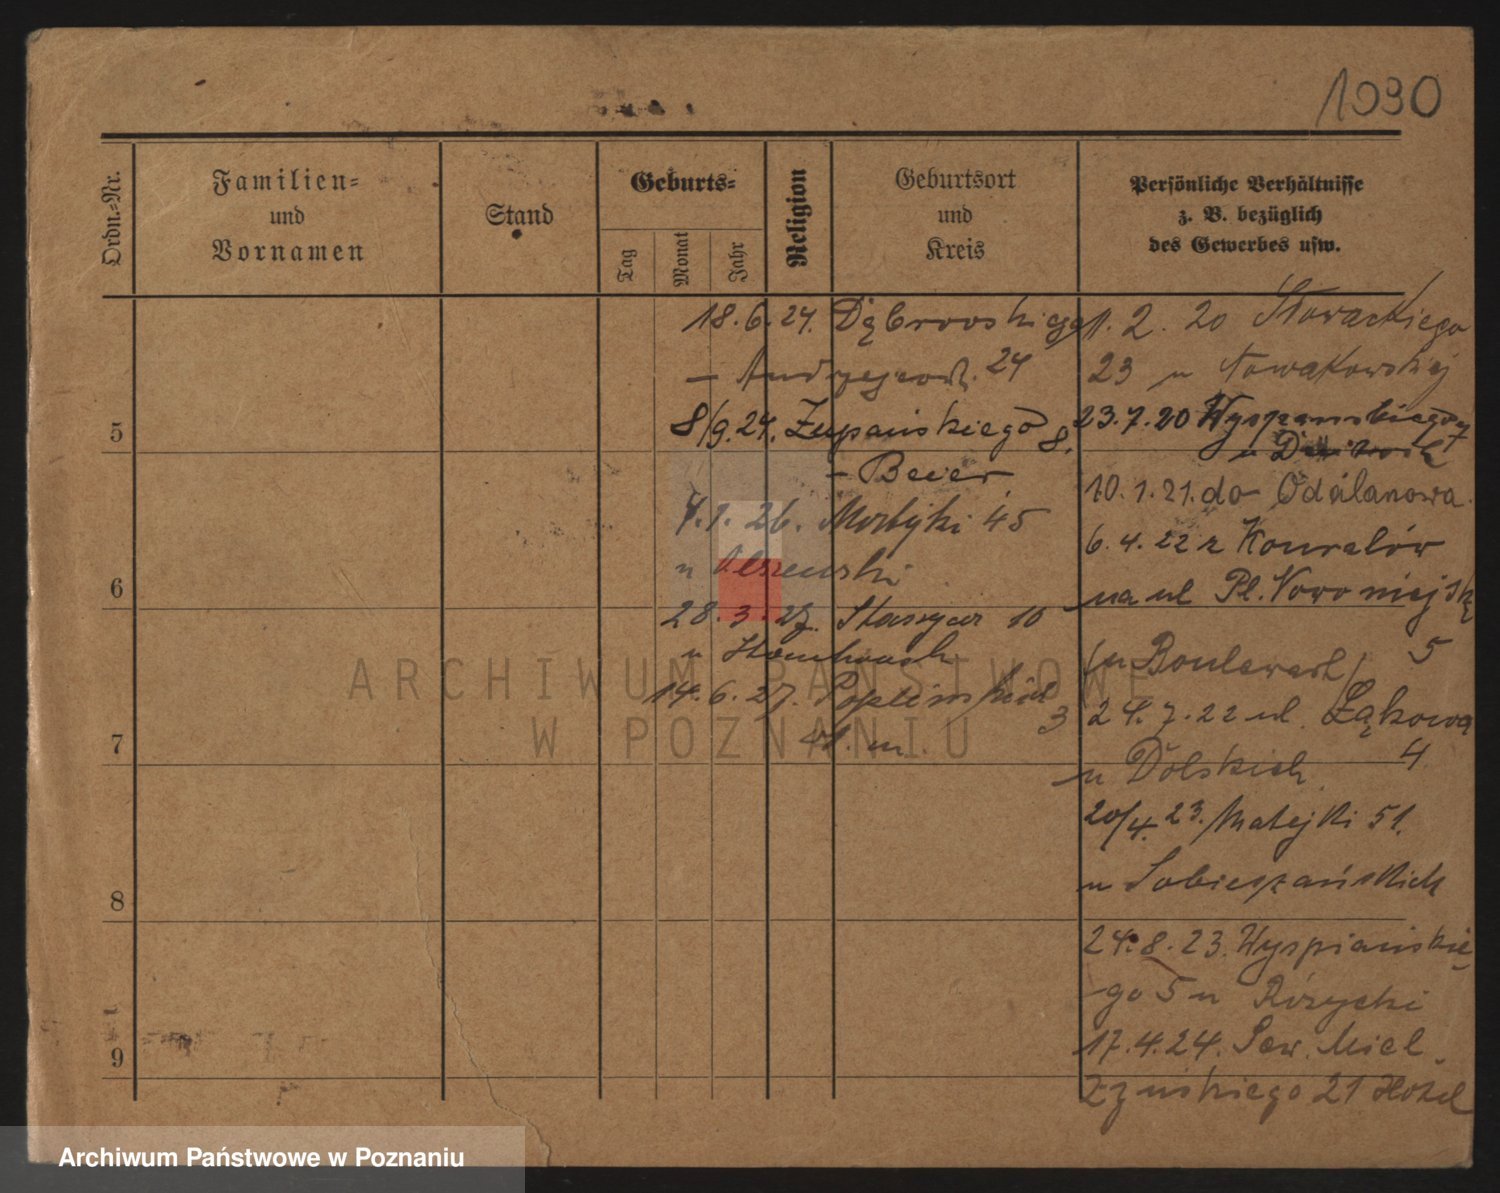 1090
Ordn.-Nr.
Familien-
und
Vornamen
Stand
Geburts-
Tag
Monat
Jahr
Religion
Geburtsort
und
Kreis
Persönliche Verhältnisse
z. B. bezüglich
des Gewerbes usw.
5
6
7
8
9
18.6.24. Dąbrowskiego
24
8/9.24. Żupańskiego 8.
- Beier
4.1.26. 45
u
28.3.27. Staszyca 10
u
14.6.27. Poplińskich 3
1.2.20 Słowackiego
23 u Nowakowskiej
23.7.20 Wyspiańskiego
u
10.1.21. do Odolanowa.
6.4.22 z
na ul Pl. Nowomiejski
5
(u Boulevard)
24.7.22 ul. Łąkowa
4
u Dolskich
20/4.23. Matejki 51.
u Sobieszańskich
24.8.23. Wyspiańskie-
go 5 u Różycki
17.4.24. Sew. Miel-
żyńskiego 21 Hotel
ARCHIWUM PAŃSTWOWE
W POZNANIU
Archiwum Państwowe w Poznaniu